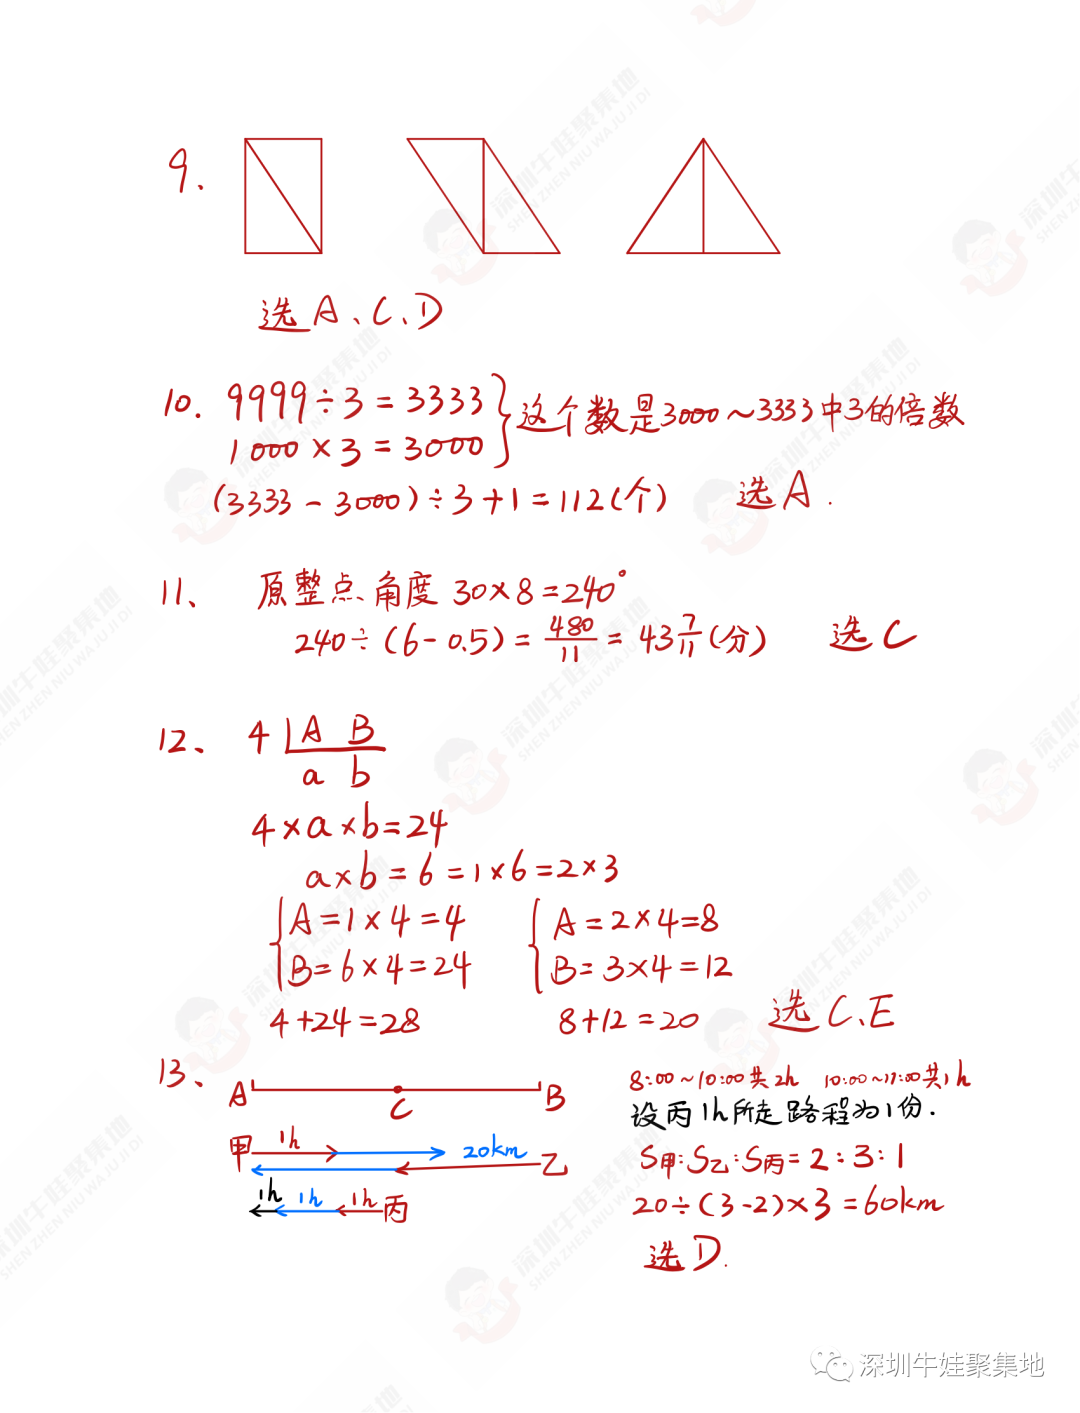 9.
选A、C、D
10. 9999÷3=3333
1000×3=3000
}这个数是3000~3333中3的倍数
(3333-3000)÷3+1=112(个) 选A.
11、 原整点角度 30×8=240°
240÷(6-0.5)=480/11=43 7/11(分) 选C
12、 4 A B
a b
4×a×b=24
a×b=6=1×6=2×3
{A=1×4=4 {A=2×4=8
B=6×4=24 B=3×4=12
4+24=28 8+12=20 选C、E
13、 A C B
甲 1h 20km 乙
1h 1h 1h 丙
8:00~10:00共2h 10:00~11:00共1h
设丙1h所走路程为1份.
S甲:S乙:S丙=2:3:1
20÷(3-2)×3=60km
选D.
深圳牛娃聚集地
SHEN ZHEN NIU WA JU JI DI
深圳牛娃聚集地